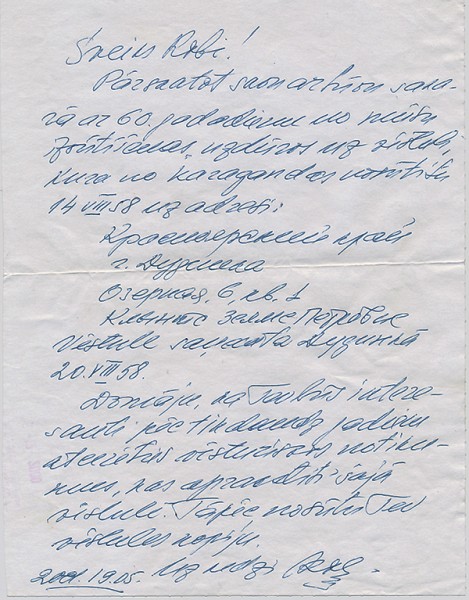 Sveiks Robi!
Pārskatot savon arhīvu saka-
rā ar 60. gadadienu no mūsu
izsūtīšanas, uzdūros uz vēstuli,
kura no Karagandas nosūtīta
14 VIII 58 uz adresi:
Красноярский край
г. Дудинка
Озерная, 6, кв. 1
Клявинс Заиге Петровне
Vēstule saņemta Dudinkā
20. VIII 58.
Domāju, ka Tev būs intere-
santi pēc tik daudz gadiem
atcerēties vēsturiskos notiku-
mus, kas aprakstīti šajā
vēstulē. Tāpēc nosūtu Tev
vēstules kopiju.
2001. 19.05. Uz redzi